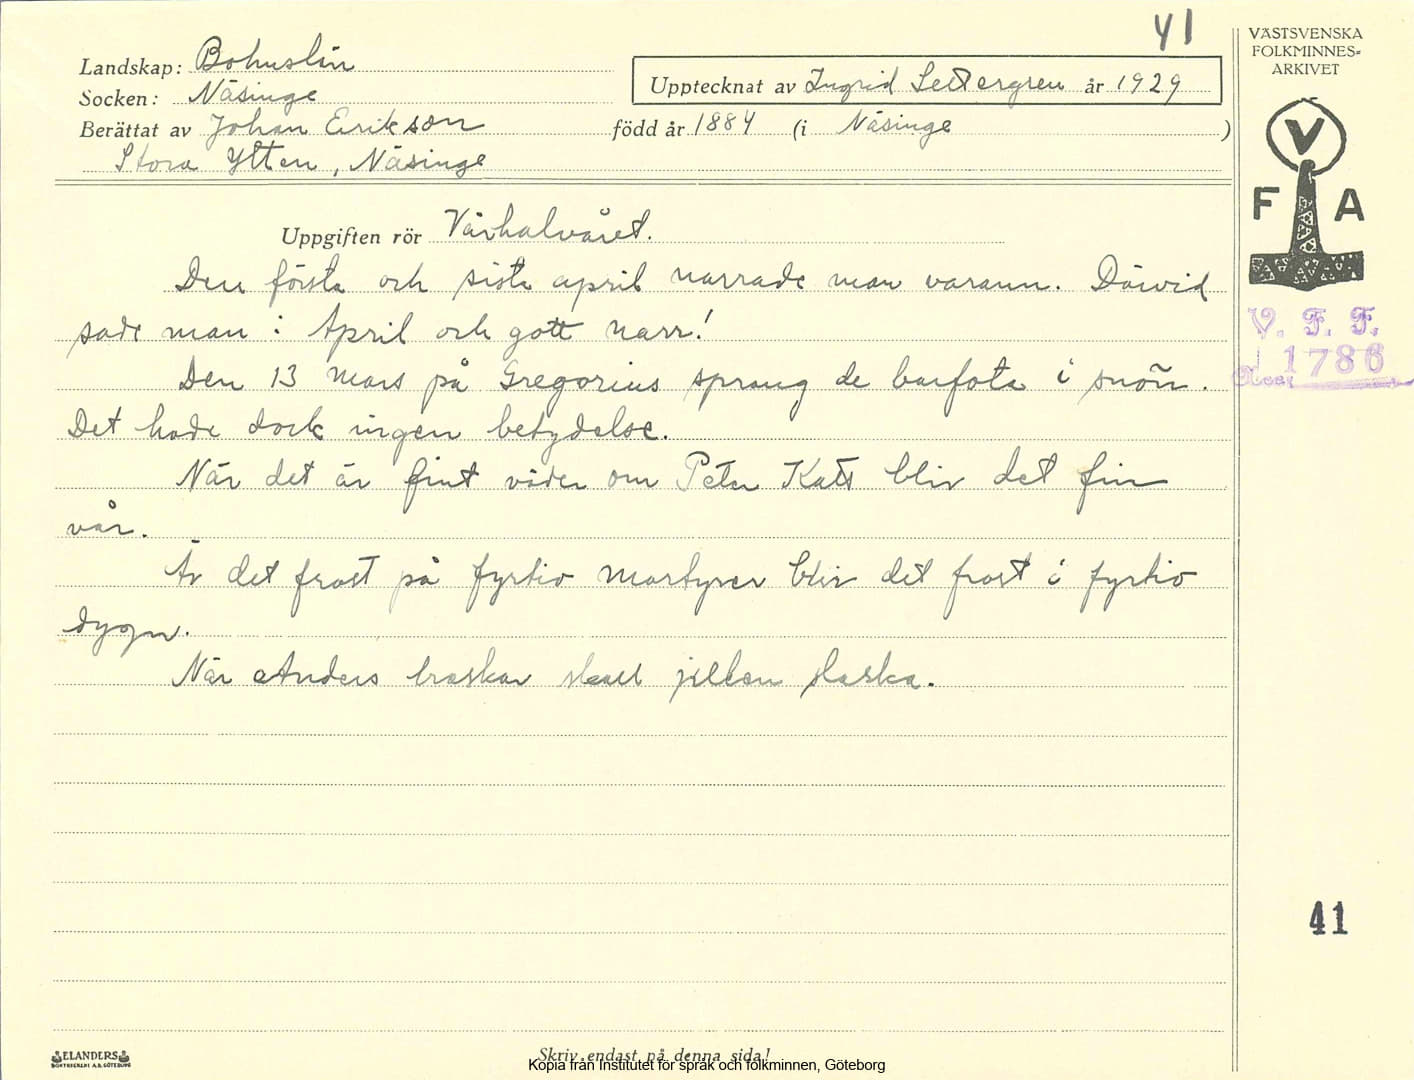 41
VÄSTSVENSKA
FOLKMINNES=
ARKIVET
Landskap: Bohuslän
Socken: Näsinge
Upptecknat av Ingrid Settergren år 1929
Berättat av Johan Erikson född år 1884 (i Näsinge )
Stora Ytten, Näsinge
V
F A
Uppgiften rör Vårhalvåret.
Den första och sista april narrade man varann. Därvid
sade man: April och gott narr!
V. F. F.
1786
Den 13 mars på Gregorius sprang de barfota i snön.
Det hade dock ingen betydelse.
När det är fint väder om Peter Katt blir det fin
vår.
Är det frost på fyrtio martyrer blir det frost i fyrtio
dygn.
När Anders braskar skall julen slaska.
41
ELANDERS
BOKTRYCKERI A.B. GÖTEBORG
Skriv endast på denna sida!
Kopia från Institutet för språk och folkminnen, Göteborg